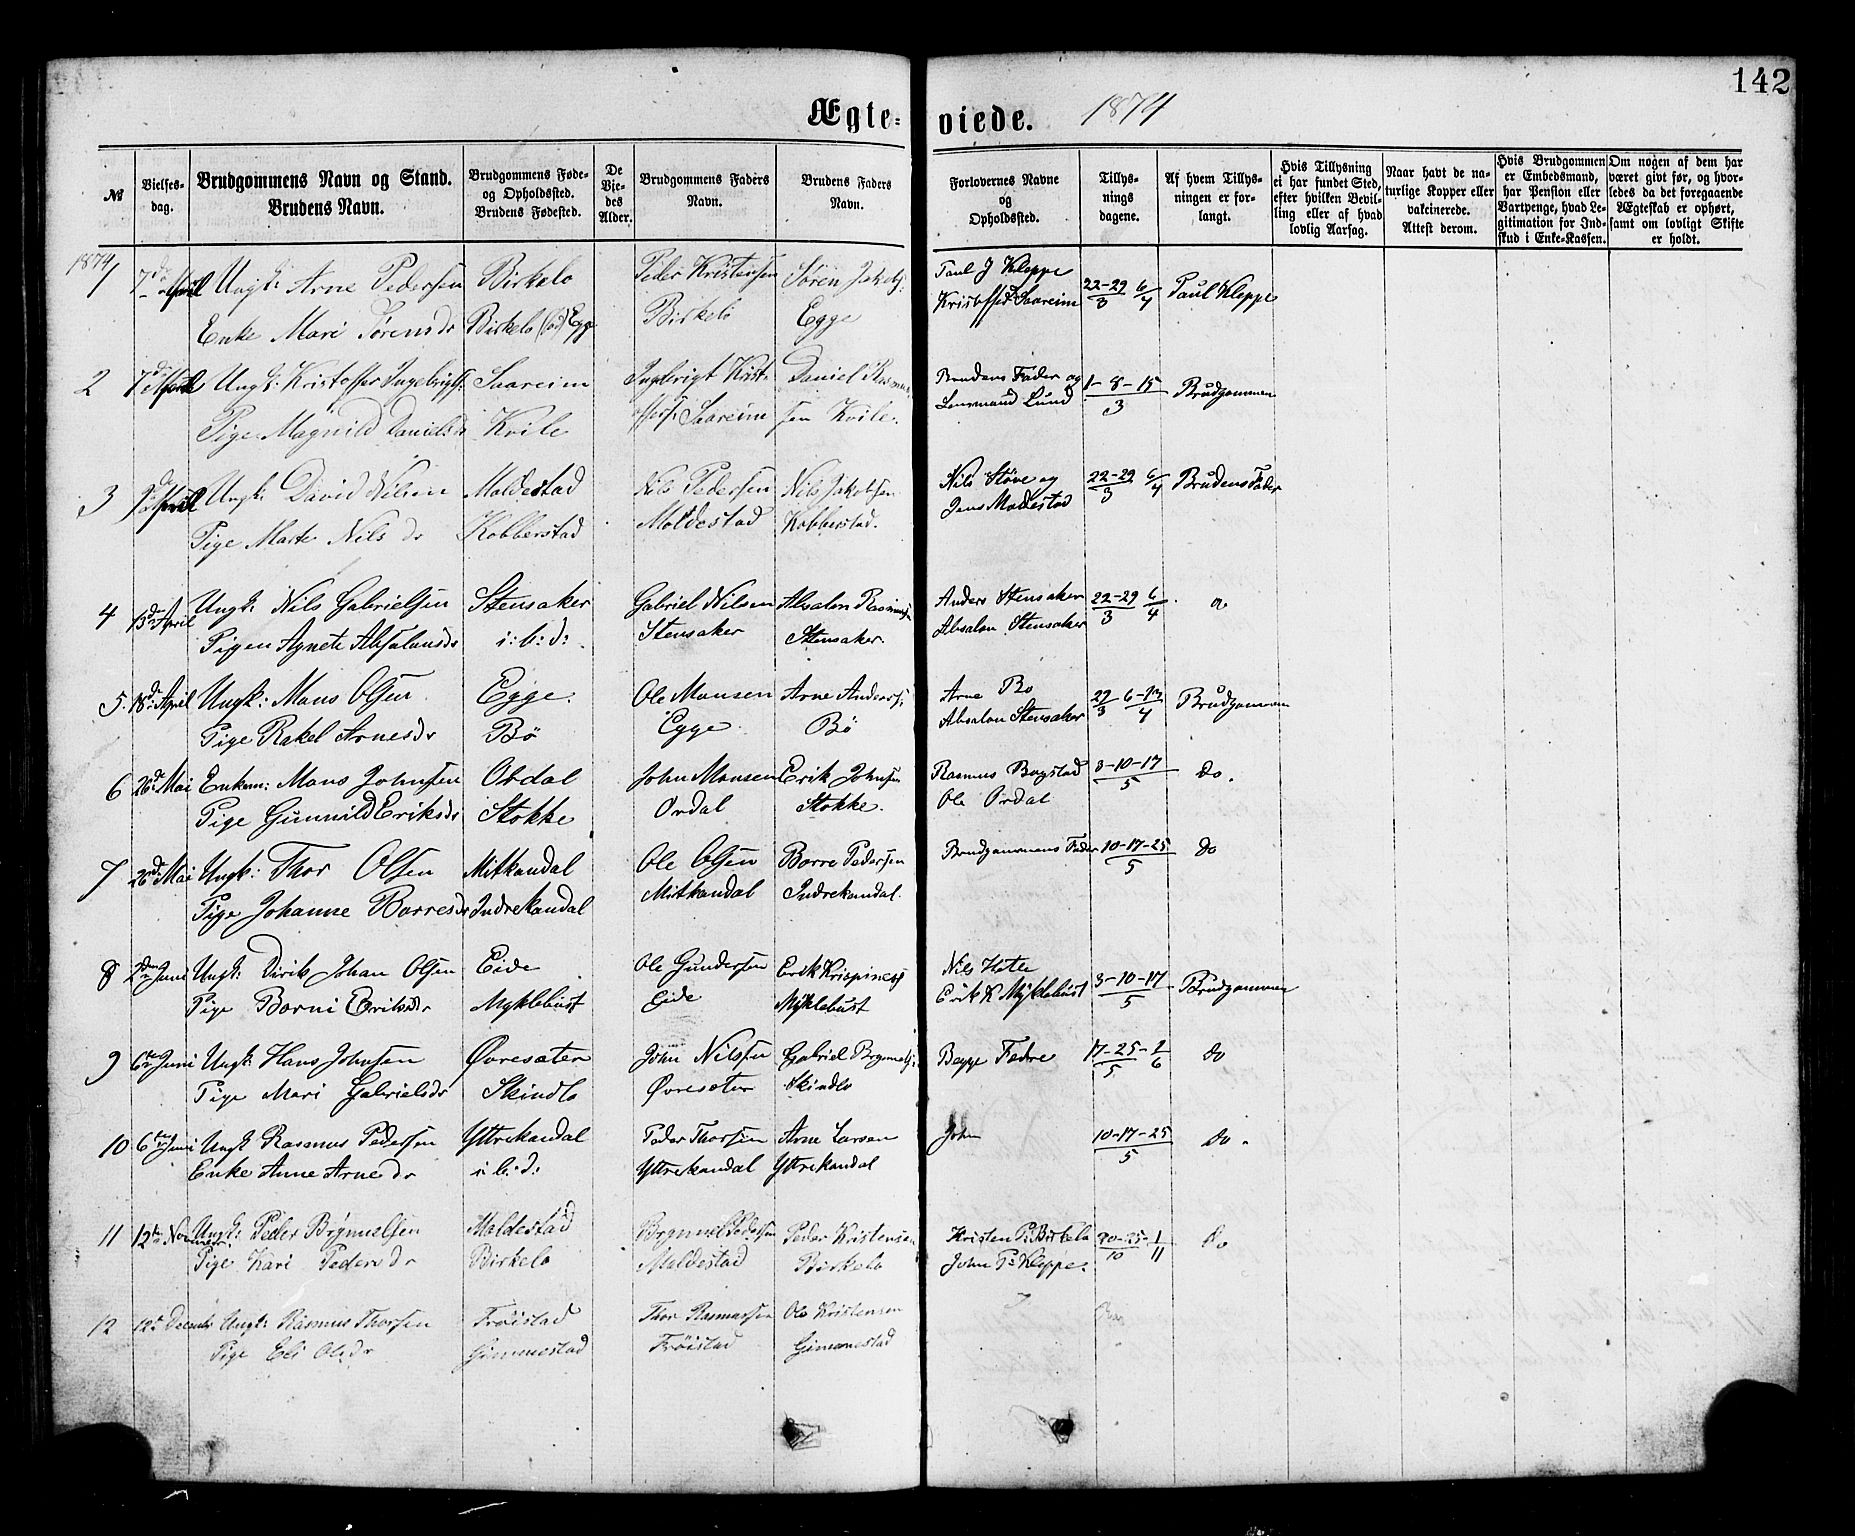 142
Ægteviede. 1874
№
Vielses-
dag.
Brudgommens Navn og Stand.
Brudens Navn.
Brudgommens Føde-
og Opholdssted.
Brudens Fødested.
De
Vie-
des
Alder.
Brudgommens Faders
Navn.
Brudens Faders
Navn.
Forlovernes Navne
og
Opholdssted.
Tillys-
nings
dagene.
Af hvem Tillys-
ningen er for-
langt.
Hvis Tillysning
ei har fundet Sted,
efter hvilken Bevil-
ling eller af hvad
lovlig Aarsag.
Naar havt de na-
turlige Kopper eller
vakcinerede.
Attest derom.
Hvis Brudgommen
er Embedsmand,
har Pension eller
Vartpenge, hvad Le-
gitimation for Ind-
skud i Enke-Kassen.
Om nogen af dem har
været givt før, og hvor-
ledes da det foregaaende
Ægteskab er ophørt,
samt om lovligt Skifte
er holdt.
1874
1 7de April Ungk: Arne Pedersen Birkelo Peder Kristensen Søren Jakobs: Paul J Kleppe 22-29/3 6/4 Paul Kleppe
Enke Mari Sørensdr Birkelo (fød) Egge Birkelo Egge Kristoffer Saareim
2 7de April Ungk: Kristoffer Ingebrigts. Saareim Ingebrigt Krist- Daniel Rasmus- Brudens Fader og 1-8-15/3 Brudgommen
Pige Magnild Danielsdr Kvile offers: Saareim sen Kvile. Lensmand Lund
3 9de April Ungk: David Nilsen Moldestad Nils Pedersen Nils Jakobsen Nils Støve og 22-29/3 6/4 Brudens Fader
Pige Marte Nilsdr Kobberstad Moldestad Kobberstad. Jens Moldestad
4 13de April Ungk: Nils Gabrielsen Stensaker Gabriel Nilsen Absalon Rasmuss: Anders Stensaker 22-29/3 6/4
Pigen Agnete Absalonsdr i: b: d: Stensaker Stensaker. Absalon Stensaker
5. 18de April Ungk: Mons Olsen Egge. Ole Monsen Arne Anderss: Arne Bø 29/3 6-13/4 Brudgommen
Pige Rakel Arnesdr Bø Egge. Bø Absalon Stensaker
6 26de Mai Enkem: Mons Johnsen Ordal John Monsen Erik Johnsen Rasmus Bogstad 3-10-17/5 do.
Pige Gunnild Eriksdr Stokke Ordal Stokke. Ole Ordal
7 26de Mai Ungk: Thor Olsen Mitkandal Ole Olsen Borre Pedersen Brudgommens Fader 10-17-25/5 do
Pige Johanne Borresdr Indrekandal Mitkandal Indrekandal.
8 2den Juni Ungk: Dirik Johan Olsen Eide Ole Gundersen Erik Krispiness Nils Hote 3-10-17/5 Brudgommen
Pige Borni Eriksdr Myklebust Eide Myklebust Erik K Myklebust
9 6te Juni Ungk: Hans Johnsen Øvresæter John Nilssen Gabriel Brynnels: Begge Fædre 17-25/5-2/6 do
Pige Mari Gabrielsdr Skindlo Øvresæter Skindlo
10 6te Juni Ungk Rasmus Pedersen Yttrekandal Peder Thorsen Arne Larsen John 10-17-25/5 do.
Enke Anne Arnedr i: b: d: Yttrekandal Yttrekandal
11 12te November Ungk: Peder Brynnelsen Moldestad Brynnel Pedersen Peder Kristensen Kristen P. Birkelo 20-25/10-1/11 do
Pige Kari Pedersdr Birkelo Moldestad Birkelo John P. Kleppe.
12 12te Decembr Ungk: Rasmus Thorsen Frøistad Thor Rasmussen Ole Kristensen
Pige Eli Olsdr Gimmestad Frøistad Gimmestad